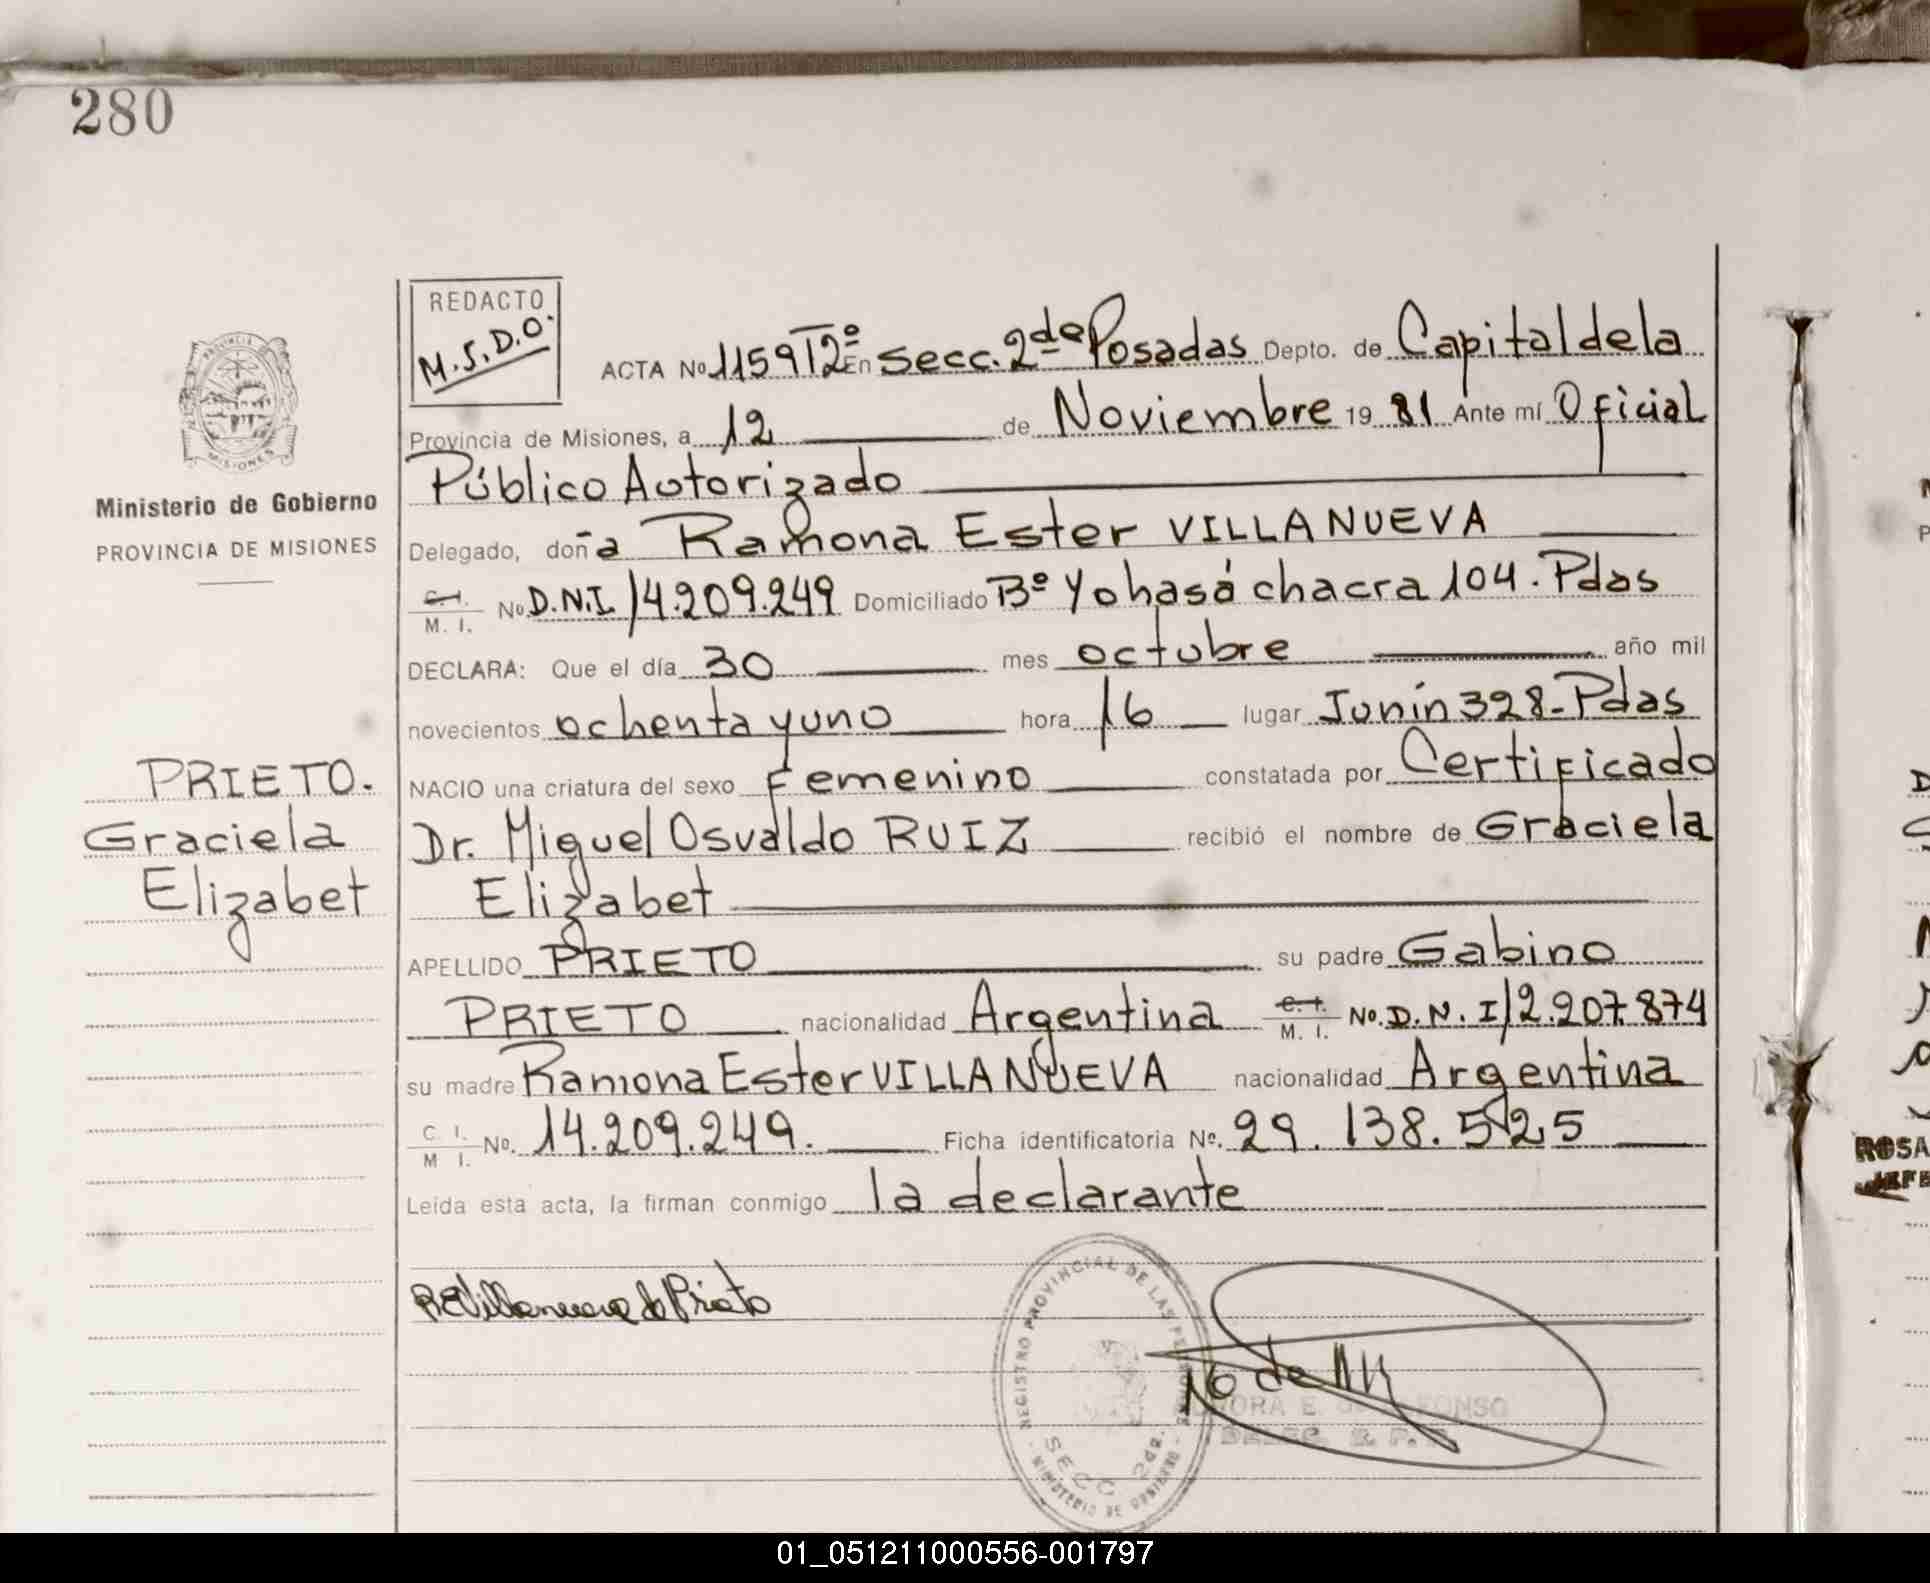 280
REDACTO
M.S.D.O.
ACTA No 1159 T 2º En Secc. 2da Posadas Depto. de Capital de la
Provincia de Misiones, a 12 de Noviembre 19 81 Ante mí Oficial
Público Autorizado
Delegado, doña Ramona Ester VILLANUEVA
C. I. M. I. No D.N.I. 14.209.249 Domiciliado Bº Yohasá chacra 104. Pdas
DECLARA: Que el día 30 mes octubre año mil
novecientos ochenta y uno hora 16 lugar Junín 328 - Pdas
NACIO una criatura del sexo Femenino constatada por Certificado
Dr. Miguel Osvaldo RUIZ recibió el nombre de Graciela
Elizabet
APELLIDO PRIETO su padre Gabino
PRIETO nacionalidad Argentina C. I. M. I. No. D.N.I 12.907.874
su madre Ramona Ester VILLANUEVA nacionalidad Argentina
C. I. M I. No. 14.209.249. Ficha identificatoria Nº. 29.138.525
Leída esta acta, la firman conmigo la declarante
REVillanueva de Prieto
PROVINCIA
MISIONES
Ministerio de Gobierno
PROVINCIA DE MISIONES
PRIETO.
Graciela
Elizabet
REGISTRO PROVINCIAL DE LAS PERSONAS
SECC 2da.
MINISTERIO DE GOBIERNO
ROSA
JEFE
01_051211000556-001797